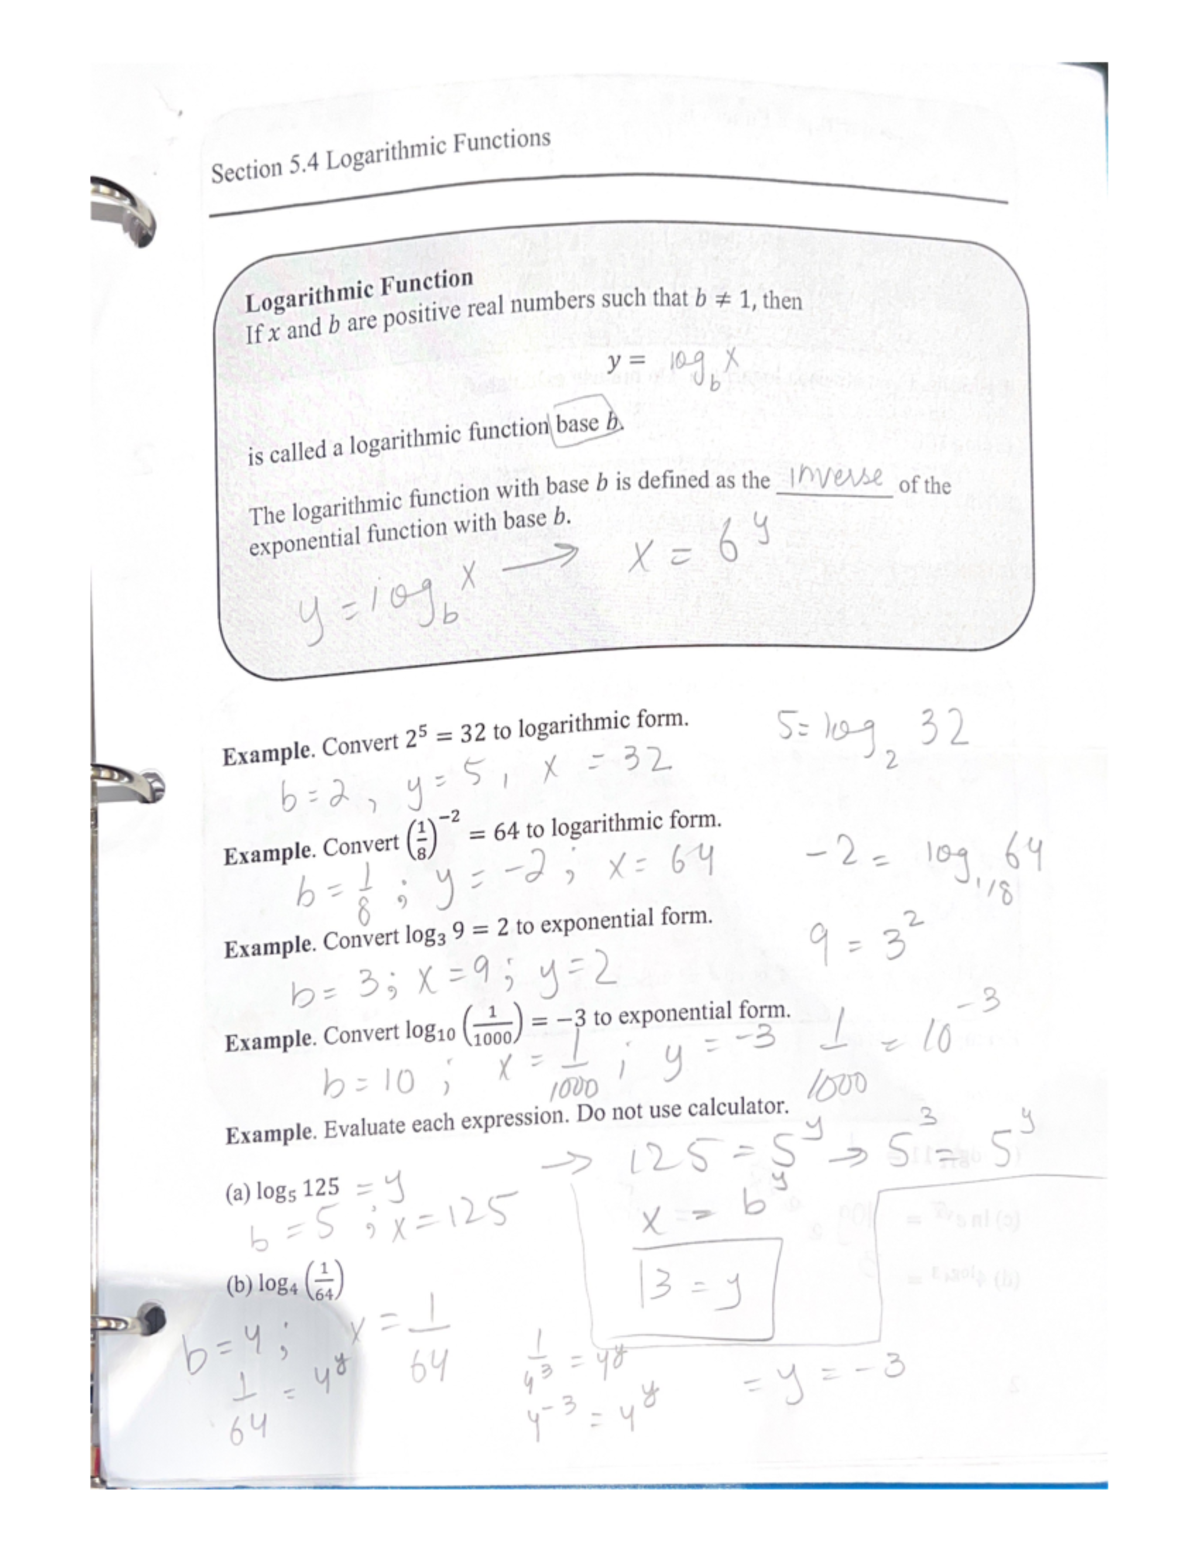 Section 5.4 Logarithmic Functions
Logarithmic Function
If x and b are positive real numbers such that b ≠ 1, then
y = log_b x
is called a logarithmic function base b.
The logarithmic function with base b is defined as the inverse of the
exponential function with base b.
y = log_b x → x = 6^y
Example. Convert 2^5 = 32 to logarithmic form. 5 = log_2 32
b = 2, y = 5, x = 32
Example. Convert (1/8)^-2 = 64 to logarithmic form. -2 = log_1/8 64
b = 1/8 ; y = -2 ; x = 64
Example. Convert log_3 9 = 2 to exponential form. 9 = 3^2
b = 3; x = 9; y = 2
Example. Convert log_10 (1/1000) = -3 to exponential form. 1/1000 = 10^-3
b = 10 ; x = 1/1000 ; y = -3
Example. Evaluate each expression. Do not use calculator.
(a) log_5 125 = y → 125 = 5^y → 5^3 = 5^y
b = 5 ; x = 125 x = b^y
13 = y
(b) log_4 (1/64)
b = 4 ; x = 1/64
1/64 = 4^y 1/4^3 = 4^y = y = -3
4^-3 = 4^y